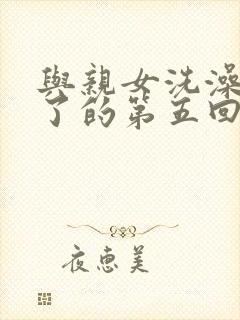 與親女洗澡
了的第五回
夜惠美